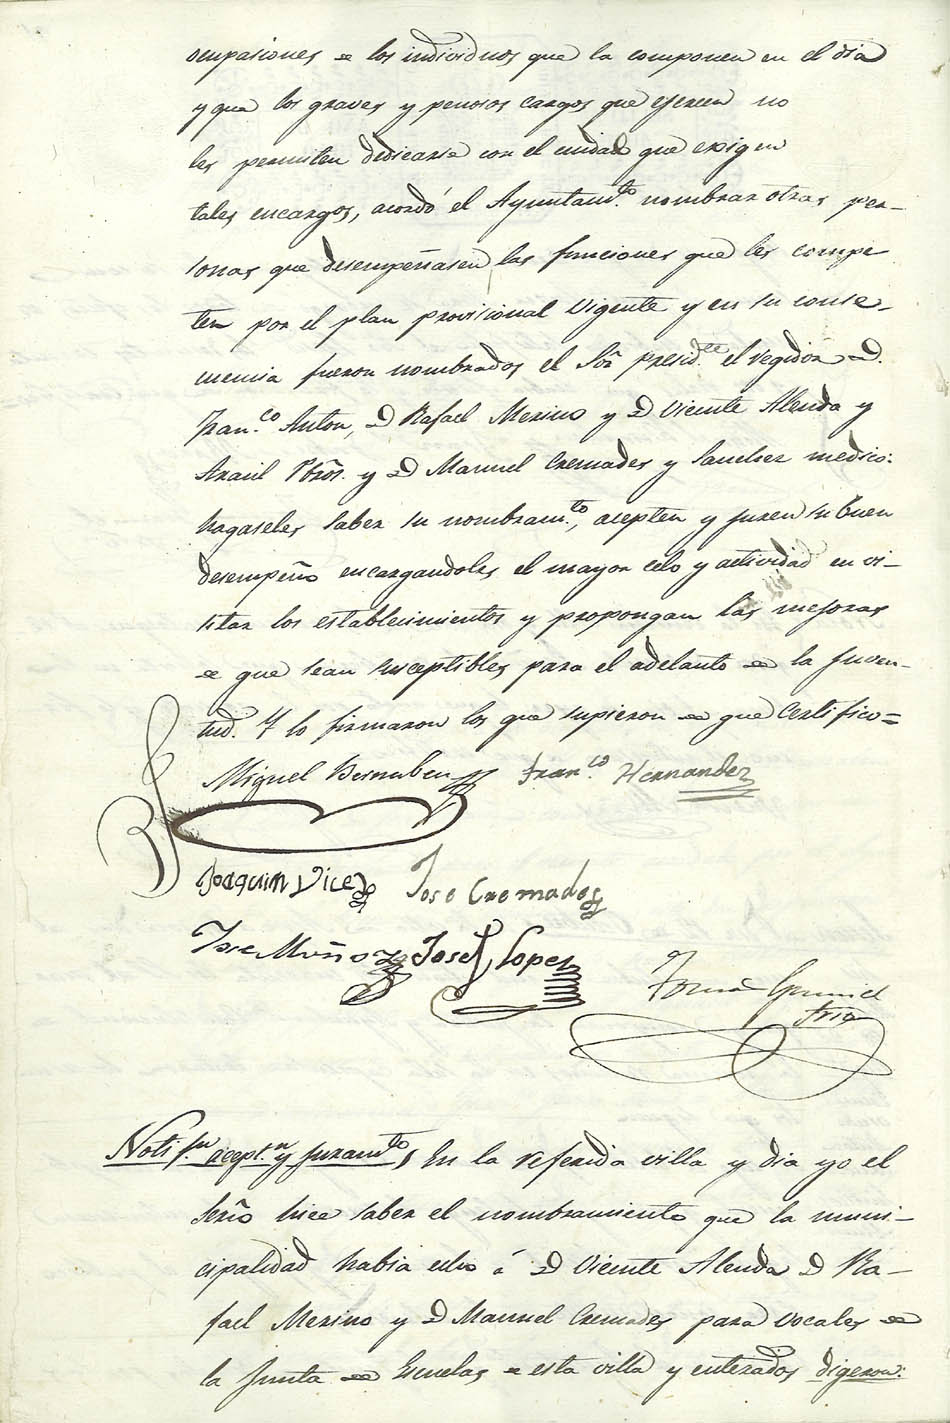 ocupasiones de los individuos que la componen en el dia
y que los graves y penosos cargos que ejercen no
les permiten dedicarse con el cuidado que exigen
tales encargos, acordó el Ayuntamto. nombrar otras per-
sonas que desempeñasen las funciones que les compe
ten por el plan provisional vigente y en su conse-
cuencia fueron nombrados el Sōr presidte el regidor D.
Franco. Anton, D Rafael Merino y D Vicente Alenda y
Arauil Pbr̃os. y D Manuel Cremades y Sanchez medico:
hagaseles saber su nombramto., acepten y juren su buen
desempeño encargandoles el mayor celo y actividad en vi-
sitar los establecimientos y propongan las mejoras
de que sean suceptibles para el adelanto de la juven-
tud. Y lo firmaron los que supieron de que Certifico=
Miguel Bernabeu Franco. Hernandez
Joaquin Vice Jose Cremades
Jose Muñoz Josef Lopez
Tomás
Srio
Notifn. acept.n y juramto, En la referida villa y dia yo el
Serño hice saber el nombramiento que la muni-
cipalidad habia echo á D Vicente Alenda D Ra-
fael Merino y D Manuel Cremades para vocales de
la Junta de Escuelas de esta villa y enterados digeron: